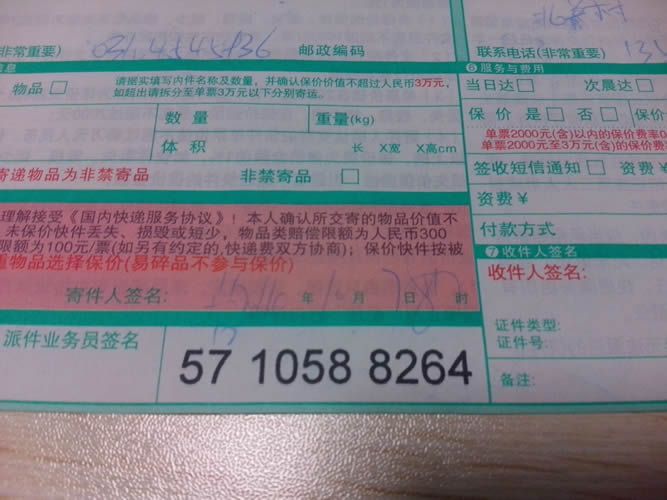 北京村
(非常重要) 邮政编码 联系电话(非常重要)
信息 ⑥服务与费用
物品 □ 请据实填写内件名称及数量,并确认保价价值不超过人民币3万元,
如超出请拆分至单票3万元以下分别寄运。
当日达 □ 次晨达 □
数量 重量(kg)
保价 是 □ 否 □ 保价
单票2000元(含)以内的保价费率
单票2000元至3万元(含)的保价费
体积 长 X宽 X高cm
签收短信通知 □ 资费¥
寄递物品为非禁寄品 非禁寄品 □
资费¥
理解接受《国内快递服务协议》!本人确认所交寄的物品价值不
未保价快件丢失、损毁或短少,物品类赔偿限额为人民币300
限额为100元/票(如另有约定的,快递费双方协商);保价快件按被
重物品选择保价(易碎品不参与保价)
付款方式
⑦收件人签名
收件人签名:
寄件人签名: 年 月 日 时
证件类型:
证件号:
派件业务员签名
57 1058 8264
备注: